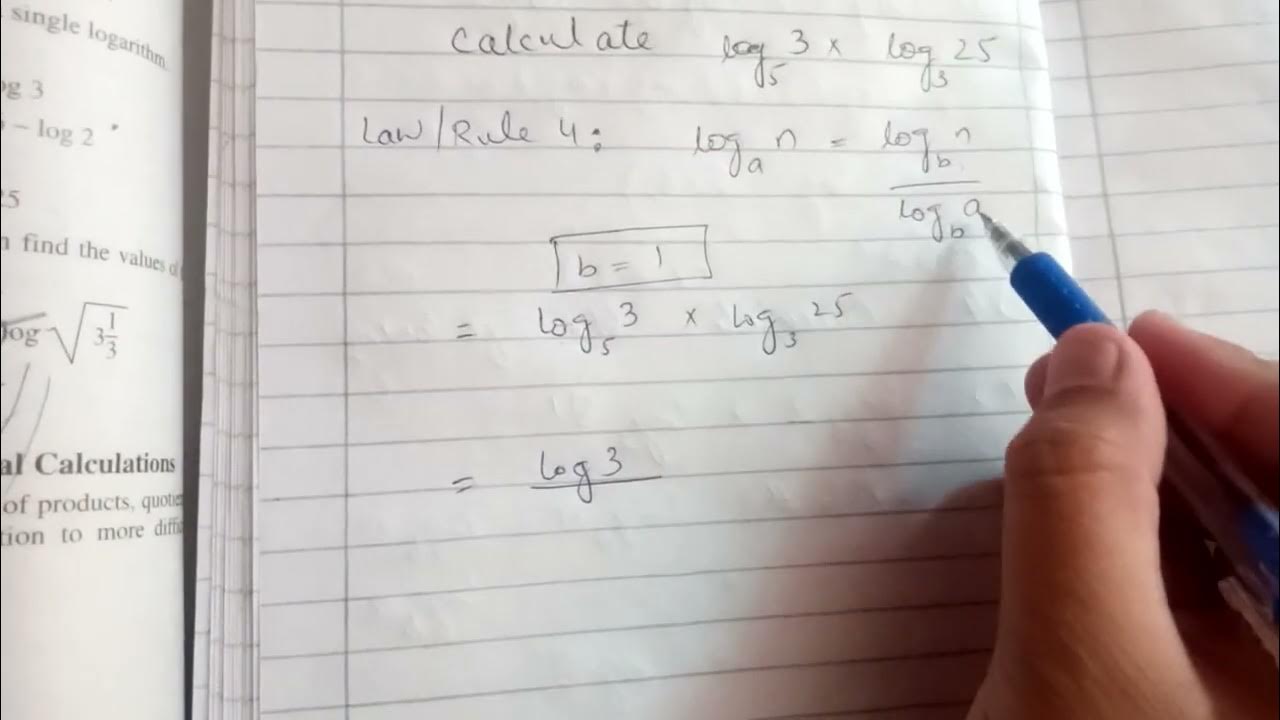 single logarithm
og 3
– log 2
25
n find the values of
log √3 1/3
al Calculations
of products, quotie
tion to more diffic
Calculate log₅ 3 × log₃ 25
Law/Rule 4: logₐ n = log_b n / log_b a
b = 1
= log₅ 3 × log₃ 25
= log 3